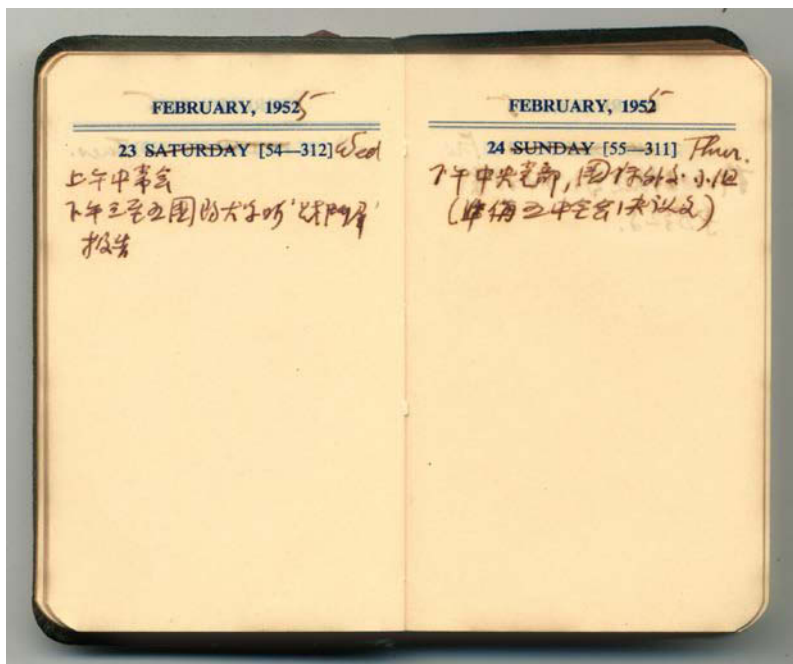 FEBRUARY, 1952 5
23 SATURDAY [54—312] Wed
上午中常会
下午三至五国防大学听
报告
FEBRUARY, 1952 5
24 SUNDAY [55—311] Thur.
下午中央党部,国际外交小组
(五中全会决议文)